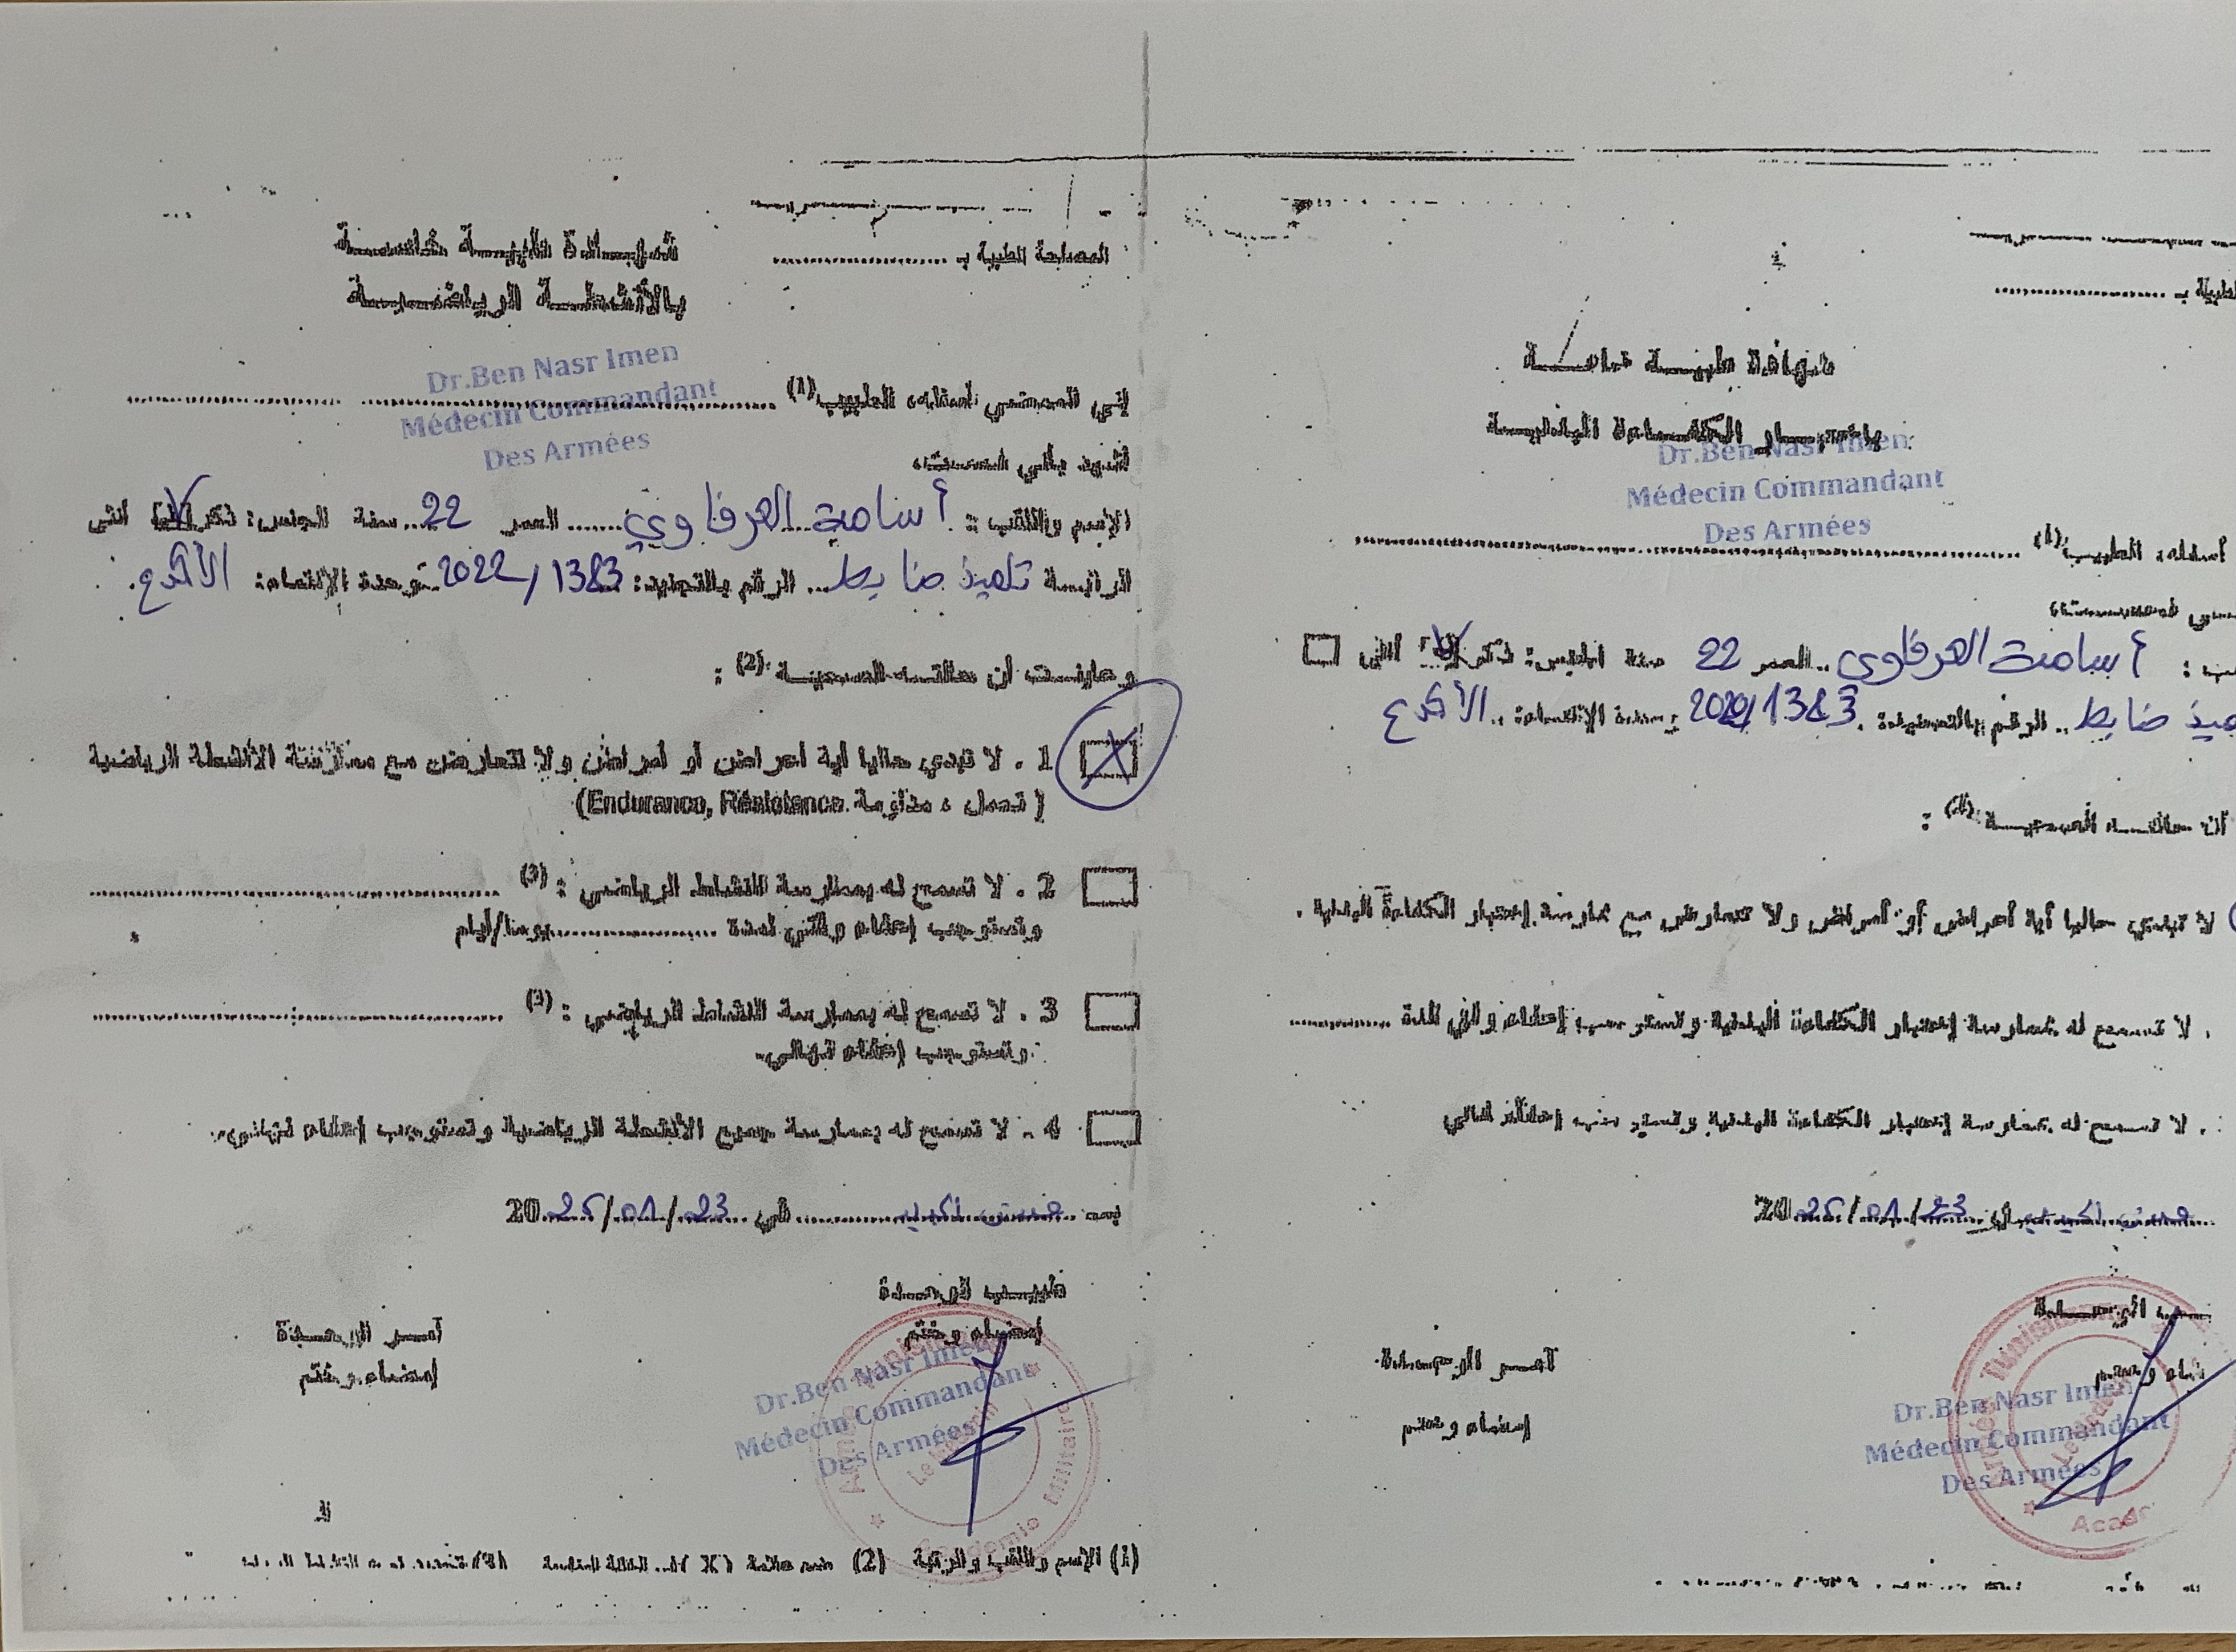 المصلحة الطبية بـ ....................
شهادة طبية خاصة
بالأنشطة الرياضية
Dr.Ben Nasr Imen
Médecin Commandant
Des Armées
إني الممضي أسفله، الطبيب(1)
أشهد بأني فحصت
الإسم واللقب : أسامة العرفاوي العمر 22 سنة الجنس: ذكر أنثى
الرتبة تلميذ ضابط الرقم بالتجنيد: 2022/1383 وحدة الإنتماء: الأكدع
وعاينت أن حالته الصحية (2) :
1 . لا تبدي حاليا أية أعراض أو أمراض ولا تتعارض مع ممارسة الأنشطة الرياضية
( تحمل ، مداومة Endurance, Résistence)
2 . لا تسمح له بممارسة النشاط الرياضي : (3)
وتستوجب إعفاء وقتي لمدة ............ يوما/أيام
3 . لا تسمح له بممارسة النشاط الرياضي : (3)
وتستوجب إعفاء نهائي.
4 . لا تسمح له بممارسة جميع الأنشطة الرياضية وتستوجب إعفاء نهائي.
في 23/01/2025
طبيب الوحدة
إمضاء وختم
آمر الوحدة
إمضاء وختم
Dr.Ben Nasr Imen
Médecin Commandant
Des Armées
Académie Militaire
(1) الإسم واللقب والرتبة (2) ضع علامة (X) في الخانة المناسبة
الطبية بـ
شهادة طبية خاصة
باختبار الكفاءة البدنية
Dr.Ben Nasr Imen
Médecin Commandant
Des Armées
أسفله، الطبيب(1)
أسامة العرفاوي العمر 22 سنة الجنس: ذكر أنثى
ضابط الرقم بالتجنيد 1383 وحدة الإنتماء الأكدع
أن حالته الصحية (2) :
لا تبدي حاليا أية أعراض أو أمراض ولا تتعارض مع ممارسة إختبار الكفاءة البدنية .
. لا تسمح له بممارسة إختبار الكفاءة البدنية وتستوجب إعفاء وقتي لمدة
. لا تسمح له بممارسة إختبار الكفاءة البدنية وتستوجب إعفاء نهائي
23/01/2025
الوحدة
آمر الوحدة
إمضاء وختم
Dr.Ben Nasr Imen
Médecin Commandant
Des Armées